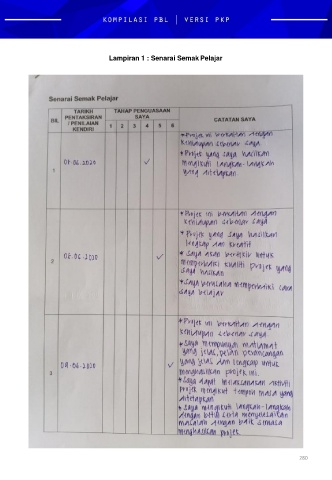 KOMPILASI PBL | VERSI PKP
Lampiran 1 : Senarai Semak Pelajar
Senarai Semak Pelajar
BIL
TARIKH PENTAKSIRAN / PENILAIAN KENDIRI
TAHAP PENGUASAAN SAYA
1 2 3 4 5 6
CATATAN SAYA
1
08.06.2020
✓
* Projek ini berkaitan dengan
kehidupan sebenar saya
* Projek yang saya hasilkan
mengikuti langkah-langkah
yang ditetapkan
2
08.06.2020
✓
* Projek ini berkaitan dengan
kehidupan sebenar saya
* Projek yang saya hasilkan
lengkap dan kreatif
* Saya akan berfikir untuk
memperbaiki kualiti projek yang
saya hasilkan
* Saya berusaha memperbaiki cara
saya belajar
3
08.06.2020
✓
* Projek ini berkaitan dengan
kehidupan sebenar saya
* Saya mempunyai matlamat
yang jelas, pelan perancangan
yang jelas dan lengkap untuk
menghasilkan projek ini.
* Saya dapat melaksanakan aktiviti
projek mengikut tempoh masa yang
ditetapkan
* Saya mengikuti langkah-langkah
dengan betul serta menyelesaikan
masalah dengan baik semasa
menghasilkan projek